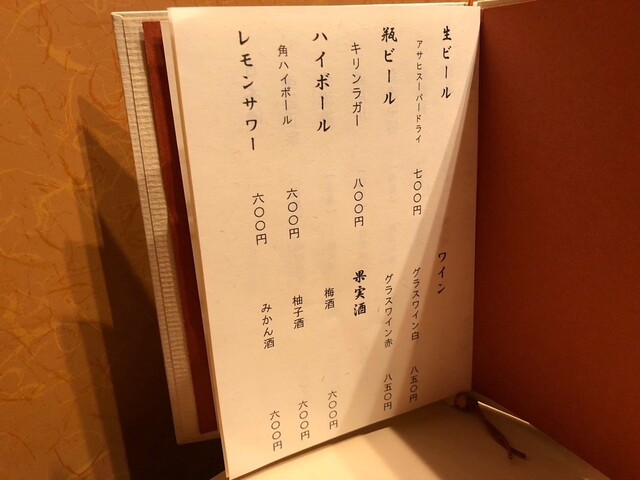 生ビール
アサヒスーパードライ 七〇〇円
瓶ビール
キリンラガー 八〇〇円
ハイボール
角ハイボール 六〇〇円
レモンサワー 六〇〇円
ワイン
グラスワイン白 八五〇円
グラスワイン赤 八五〇円
果実酒
梅酒 六〇〇円
柚子酒 六〇〇円
みかん酒 六〇〇円